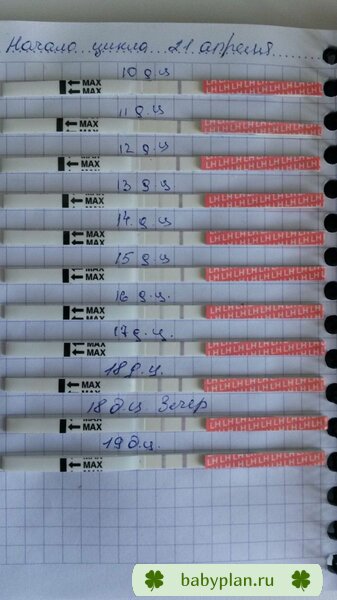 Начало...цикла...21 апреля........
10 д.ц
← MAX
LH LH LH LH LH LH LH
11 д.ц
← MAX
LH LH LH LH LH LH LH
12 д.ц
← MAX
LH LH LH LH LH LH LH
13 д.ц
← MAX
LH LH LH LH LH LH LH
14 д.ц
← MAX
LH LH LH LH LH LH LH
15 д.ц
← MAX
LH LH LH LH LH LH LH
16 д.ц.
← MAX
LH LH LH LH LH LH LH
17 д.ц.
← MAX
LH LH LH LH LH LH LH
18 д.ц.
← MAX
LH LH LH LH LH LH LH
18 д.ц Вечер
← MAX
LH LH LH LH LH LH LH
19 д.ц.
← MAX
LH LH LH LH LH LH LH
babyplan.ru